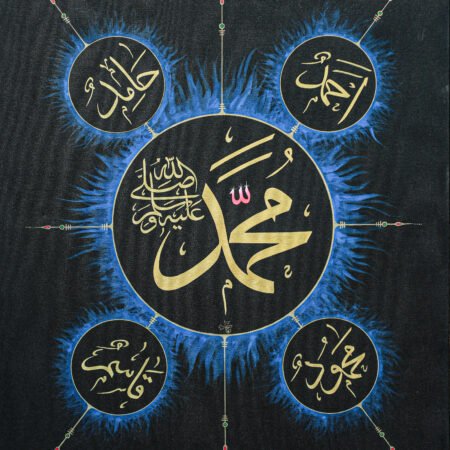 أحمد
حامد
محمد
صلى الله عليه وسلم
محمود
قاسم